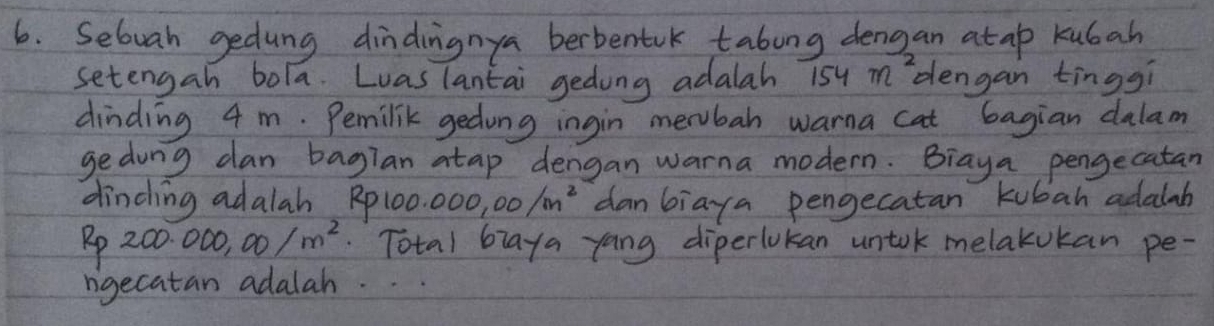 6. Sebuah gedung dindingnya berbentuk tabung dengan atap kubah
setengah bola. Luas lantai gedung adalah 154 m² dengan tinggi
dinding 4 m. Pemilik gedung ingin merubah warna cat bagian dalam
gedung dan bagian atap dengan warna modern. Biaya pengecatan
dinding adalah Rp100.000,00/m² dan biaya pengecatan kubah adalah
Rp 200.000,00/m². Total biaya yang diperlukan untuk melakukan pe-
ngecatan adalah ...